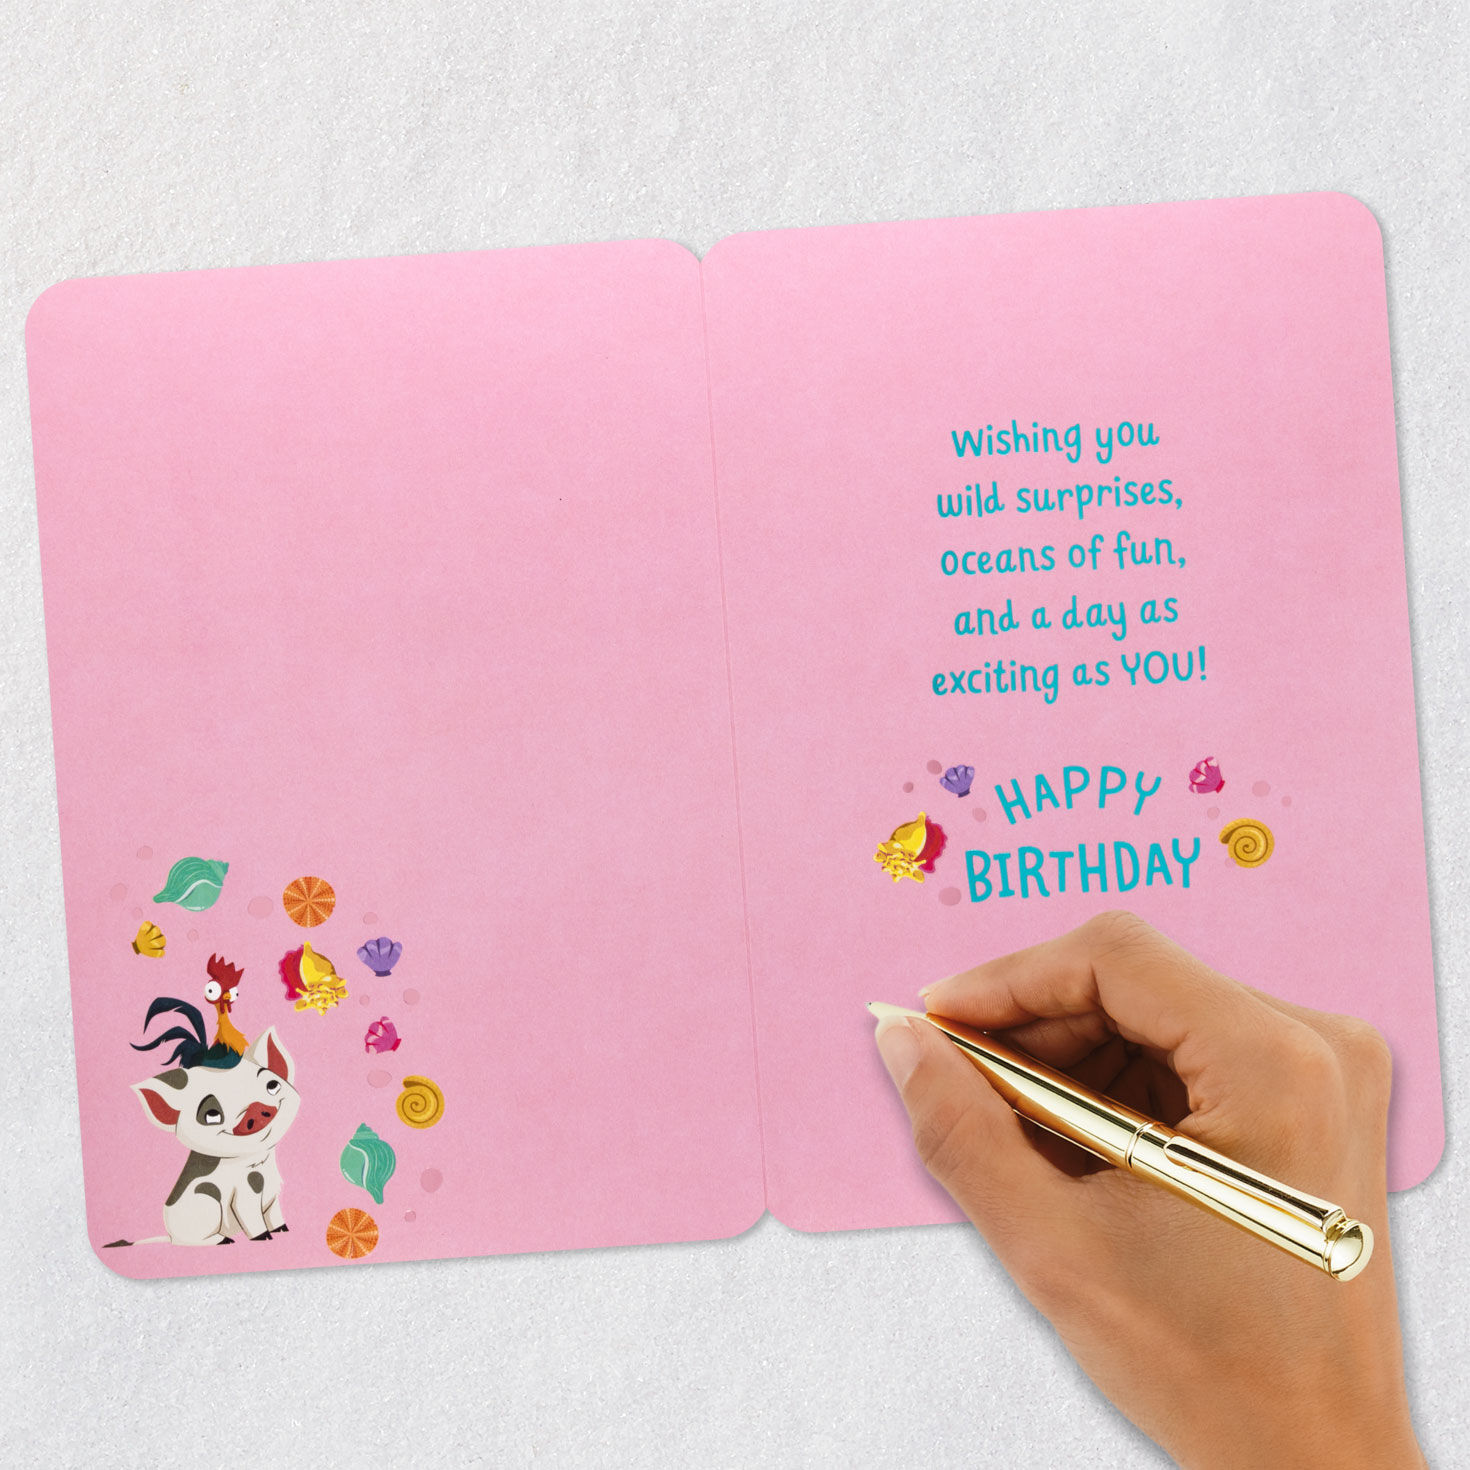 Wishing you
wild surprises,
oceans of fun,
and a day as
exciting as YOU!
HAPPY
BIRTHDAY